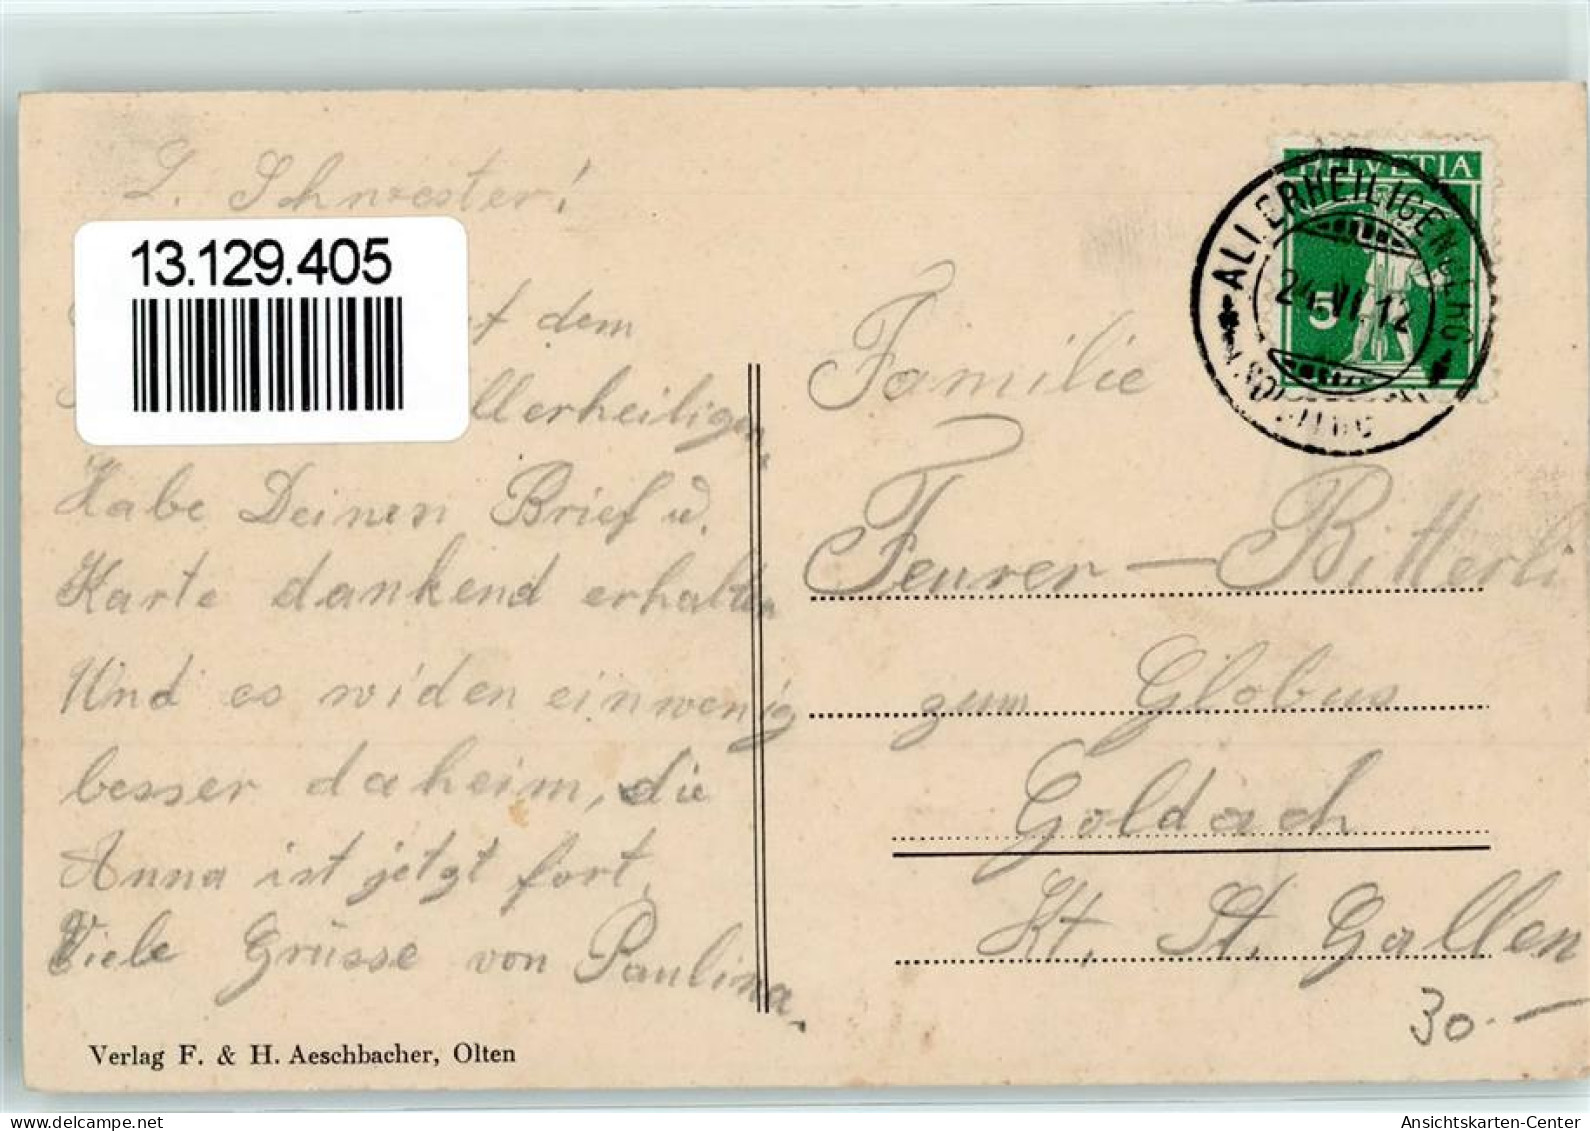 L. Schwester!
13.129.405
dem
llerheiligen
Habe Deinen Brief u.
Karte dankend erhalten
Und es widen einwenig
besser daheim, die
Anna ist jetzt fort,
Viele Grüsse von Paulina.
Verlag F. & H. Aeschbacher, Olten
HELVETIA
5
ALLERHEILIGENBERG
24.VI.12
Familie
Feurer - Bitterli
zum Globus
Goldach
Kt. St. Gallen
30.-
www.delcampe.net
Ansichtskarten-Center